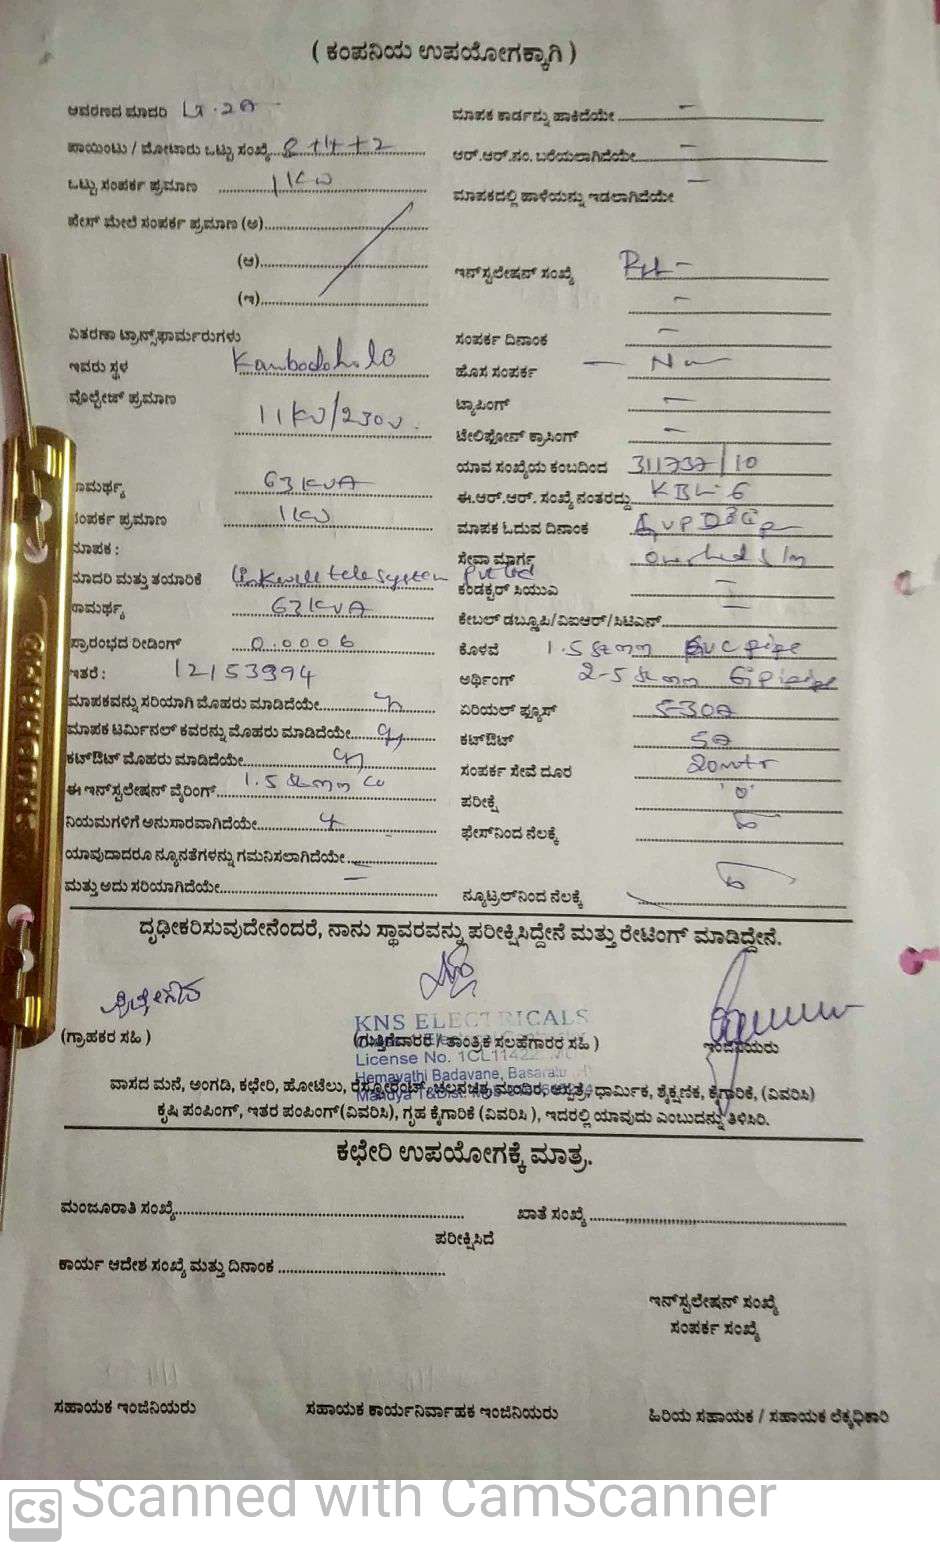 ( ಕಂಪನಿಯ ಉಪಯೋಗಕ್ಕಾಗಿ )
ಆವರಣದ ಮಾದರಿ
ಪಾಯಿಂಟು / ಮೋಟಾರು ಒಟ್ಟು ಸಂಖ್ಯೆ 8+4+2
ಒಟ್ಟು ಸಂಪರ್ಕ ಪ್ರಮಾಣ 1KW
ಫೇಸ್ ಮೇಲೆ ಸಂಪರ್ಕ ಪ್ರಮಾಣ (ಅ)
(ಆ)
(ಇ)
ವಿತರಣಾ ಟ್ರಾನ್ಸ್‌ಫಾರ್ಮರುಗಳು
ಇವರು ಸ್ಥಳ
ವೋಲ್ಟೇಜ್ ಪ್ರಮಾಣ 11KV/230V.
ಸಾಮರ್ಥ್ಯ 63KVA
ಸಂಪರ್ಕ ಪ್ರಮಾಣ 1KW
ಮಾಪಕ :
ಮಾದರಿ ಮತ್ತು ತಯಾರಿಕೆ Linkwell telesystem Pvt Ltd
ಸಾಮರ್ಥ್ಯ 63KVA
ಪ್ರಾರಂಭದ ರೀಡಿಂಗ್ 0.0006
ಇತರೆ : 12153994
ಮಾಪಕವನ್ನು ಸರಿಯಾಗಿ ಮೊಹರು ಮಾಡಿದೆಯೇ
ಮಾಪಕ ಟರ್ಮಿನಲ್ ಕವರನ್ನು ಮೊಹರು ಮಾಡಿದೆಯೇ
ಕಟ್‌ಔಟ್ ಮೊಹರು ಮಾಡಿದೆಯೇ
ಈ ಇನ್‌ಸ್ಟಲೇಷನ್ ವೈರಿಂಗ್ 1.5
ನಿಯಮಗಳಿಗೆ ಅನುಸಾರವಾಗಿದೆಯೇ
ಯಾವುದಾದರೂ ನ್ಯೂನತೆಗಳನ್ನು ಗಮನಿಸಲಾಗಿದೆಯೇ
ಮತ್ತು ಅದು ಸರಿಯಾಗಿದೆಯೇ
ಮಾಪಕ ಕಾರ್ಡನ್ನು ಹಾಕಿದೆಯೇ
ಆರ್.ಆರ್.ನಂ. ಬರೆಯಲಾಗಿದೆಯೇ
ಮಾಪಕದಲ್ಲಿ ಹಾಳೆಯನ್ನು ಇಡಲಾಗಿದೆಯೇ
ಇನ್‌ಸ್ಟಲೇಷನ್ ಸಂಖ್ಯೆ
ಸಂಪರ್ಕ ದಿನಾಂಕ
ಹೊಸ ಸಂಪರ್ಕ
ಟ್ಯಾಪಿಂಗ್
ಟೇಲಿಫೋನ್ ಕ್ರಾಸಿಂಗ್
ಯಾವ ಸಂಖ್ಯೆಯ ಕಂಬದಿಂದ 311737/10
ಈ.ಆರ್.ಆರ್. ಸಂಖ್ಯೆ ನಂತರದ್ದು KBL-6
ಮಾಪಕ ಓದುವ ದಿನಾಂಕ
ಸೇವಾ ಮಾರ್ಗ
ಕಂಡಕ್ಟರ್ ಸಿಯುಎ
ಕೇಬಲ್ ಡಬ್ಲೂಪಿ/ವಿಐಆರ್/ಸಿಟಿಎಸ್
ಕೊಳವೆ 1.5 pipe
ಅರ್ಥಿಂಗ್ 2-5
ಏರಿಯಲ್ ಫ್ಯೂಸ್
ಕಟ್‌ಔಟ್ 5A
ಸಂಪರ್ಕ ಸೇವೆ ದೂರ 20mtr
ಪರೀಕ್ಷೆ '0'
ಫೇಸ್‌ನಿಂದ ನೆಲಕ್ಕೆ
ನ್ಯೂಟ್ರಲ್‌ನಿಂದ ನೆಲಕ್ಕೆ
ದೃಢೀಕರಿಸುವುದೇನೆಂದರೆ, ನಾನು ಸ್ಥಾವರವನ್ನು ಪರೀಕ್ಷಿಸಿದ್ದೇನೆ ಮತ್ತು ರೇಟಿಂಗ್ ಮಾಡಿದ್ದೇನೆ.
KNS ELECTRICALS
(ಗ್ರಾಹಕರ ಸಹಿ ) (ಗುತ್ತಿಗೆದಾರರ / ತಾಂತ್ರಿಕ ಸಲಹೆಗಾರರ ಸಹಿ ) ಇಂಜಿನಿಯರು
License No. 1CL11422
Hemavathi Badavane, Basaralu
ವಾಸದ ಮನೆ, ಅಂಗಡಿ, ಕಛೇರಿ, ಹೋಟೆಲು, ರೆಸ್ಟೋರೆಂಟ್, ಚಲನಚಿತ್ರ ಮಂದಿರ, ಆಸ್ಪತ್ರೆ, ಧಾರ್ಮಿಕ, ಶೈಕ್ಷಣಿಕ, ಕೈಗಾರಿಕೆ, (ವಿವರಿಸಿ)
ಕೃಷಿ ಪಂಪಿಂಗ್, ಇತರ ಪಂಪಿಂಗ್ (ವಿವರಿಸಿ), ಗೃಹ ಕೈಗಾರಿಕೆ (ವಿವರಿಸಿ ), ಇದರಲ್ಲಿ ಯಾವುದು ಎಂಬುದನ್ನು ತಿಳಿಸಿರಿ.
ಕಛೇರಿ ಉಪಯೋಗಕ್ಕೆ ಮಾತ್ರ.
ಮಂಜೂರಾತಿ ಸಂಖ್ಯೆ ಖಾತೆ ಸಂಖ್ಯೆ
ಪರೀಕ್ಷಿಸಿದೆ
ಕಾರ್ಯ ಆದೇಶ ಸಂಖ್ಯೆ ಮತ್ತು ದಿನಾಂಕ
ಇನ್‌ಸ್ಟಲೇಷನ್ ಸಂಖ್ಯೆ
ಸಂಪರ್ಕ ಸಂಖ್ಯೆ
ಸಹಾಯಕ ಇಂಜಿನಿಯರು ಸಹಾಯಕ ಕಾರ್ಯನಿರ್ವಾಹಕ ಇಂಜಿನಿಯರು ಹಿರಿಯ ಸಹಾಯಕ / ಸಹಾಯಕ ಲೆಕ್ಕಧಿಕಾರಿ
CS Scanned with CamScanner